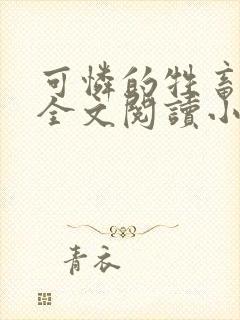 可憐的牲畜
全文閱讀小
青衣